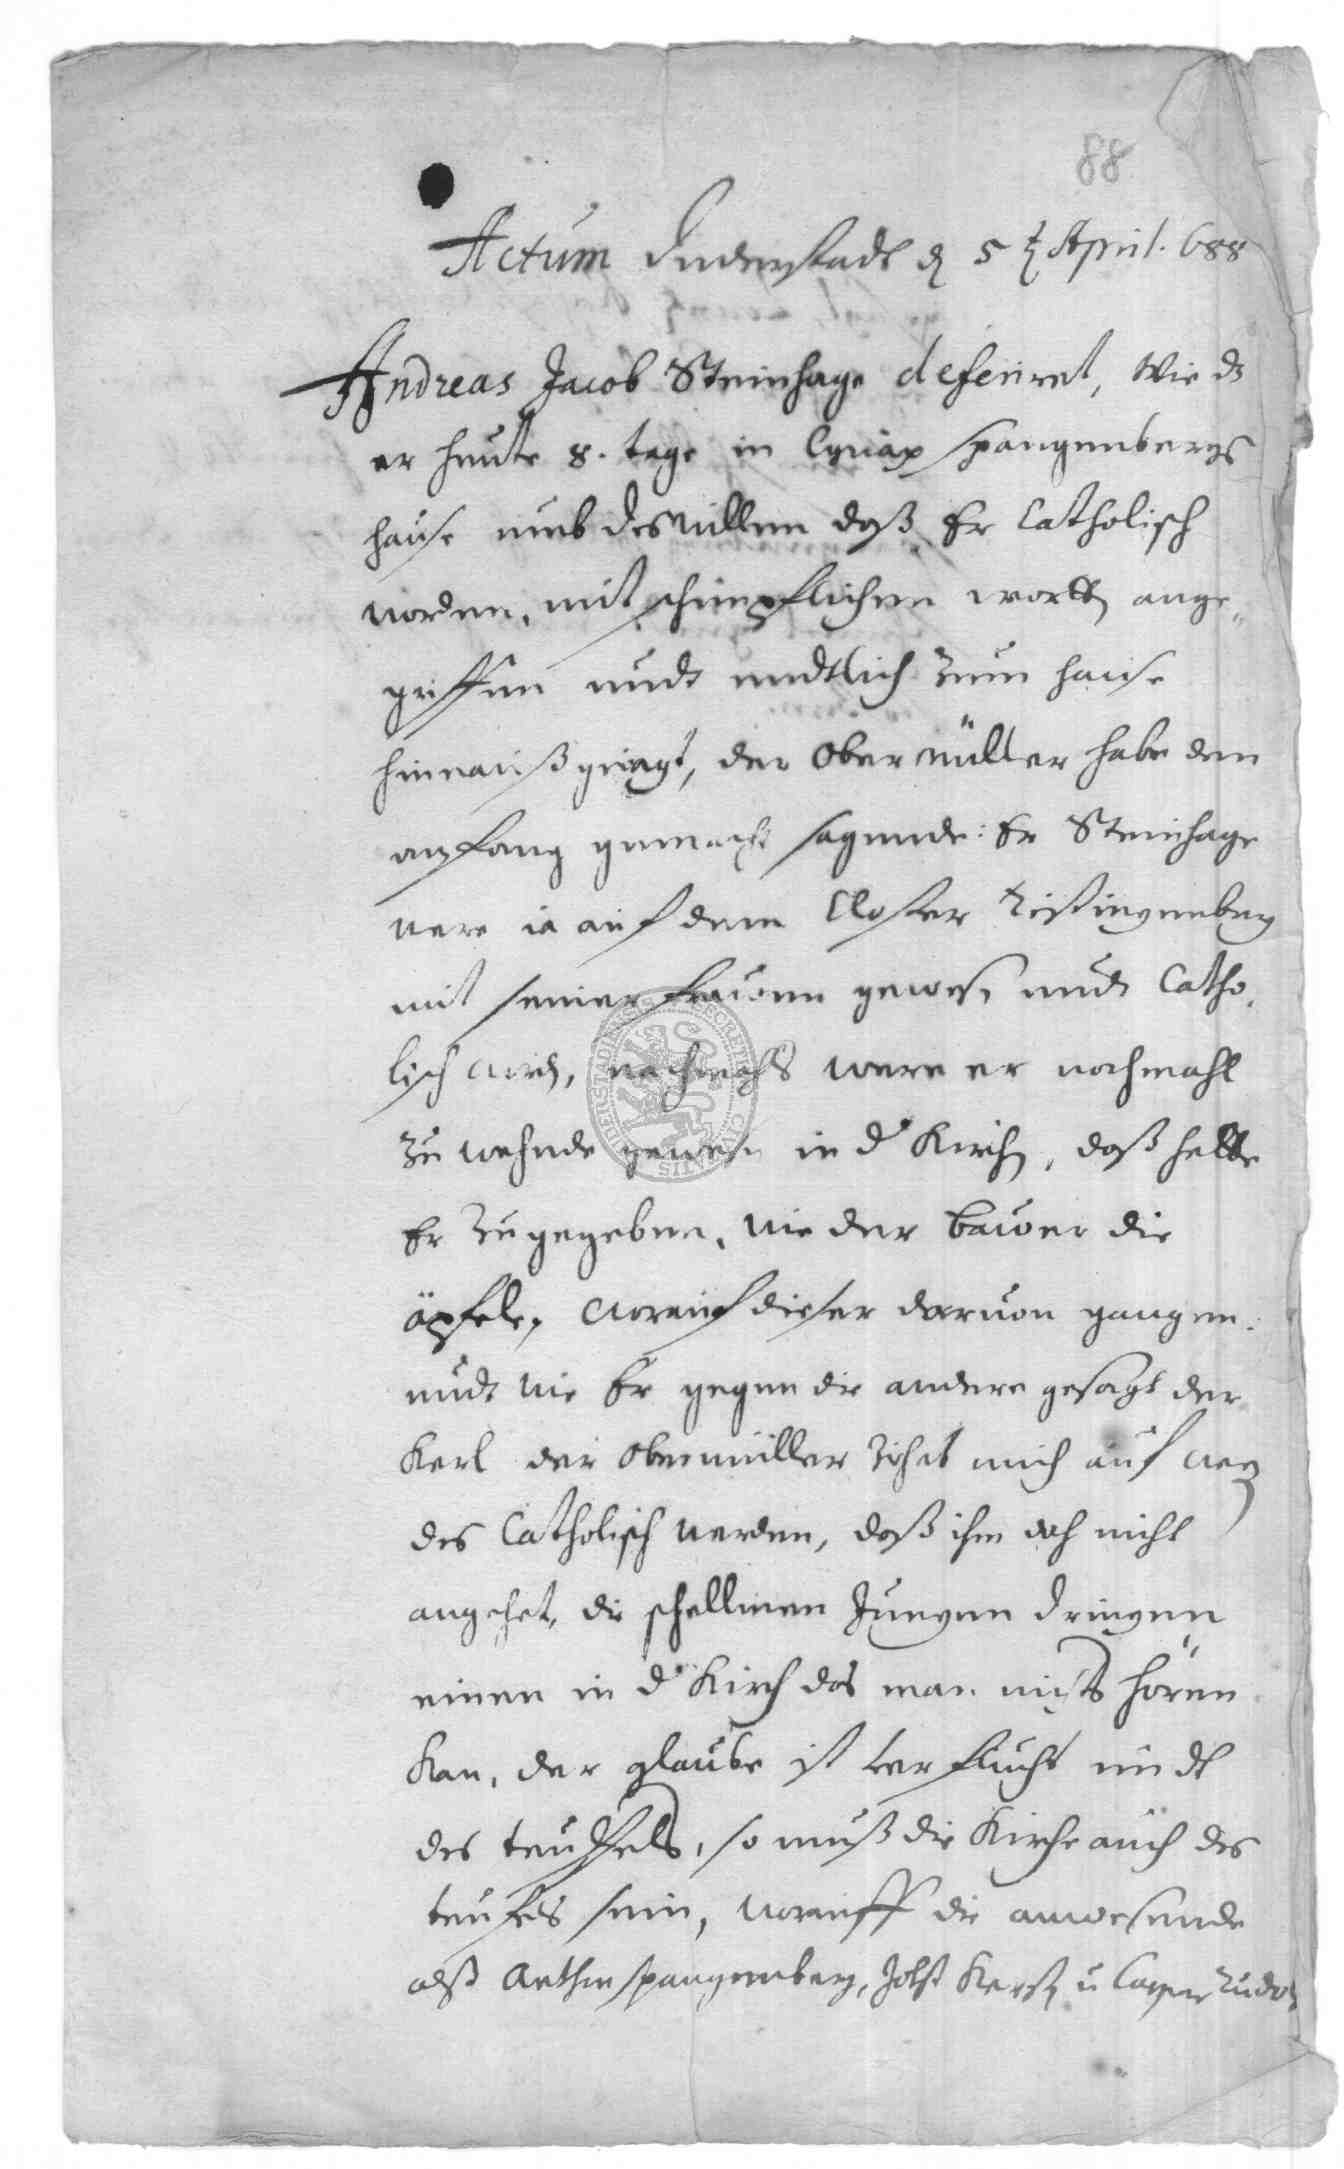 88
Actum Duderstadt d 5 t April. 688
Andreas Jacob Steinhage deferiret, wie ds
er heute 8. tage in Cyriax Spangenbergs
hause umb deswillen daß Er Catholisch
worden, mit schimpflichen wortt ange„
griffen undt endtlich zum hause
hinnauß geiagt, der Obermüller habe den
anfang gemacht sagende: Er Steinhage
were ia auf dem Closter
mit seiner frauwen gewesen undt Catho„
lisch word, nachmahls were er nochmahl
zu wehnde gewesen in d Kirch, daß hette
Er zugegeben, wie der bauwer die
äpfele, worauf dieser daruon gangen.
undt wie Er gegen die andere gesagt der
Kerl der Obermüller zihet mich auf weg
des Catholisch werden, daß ihm doch nicht
angehet, die schellmen Jungen dringen
einen in d Kirch das man nichts hören
kan, der glaube ist verflucht undt
des teuffels, so muß die Kirche auch des
teufels sein, worauff die anwesende
alß Spangenberg, Jobst u